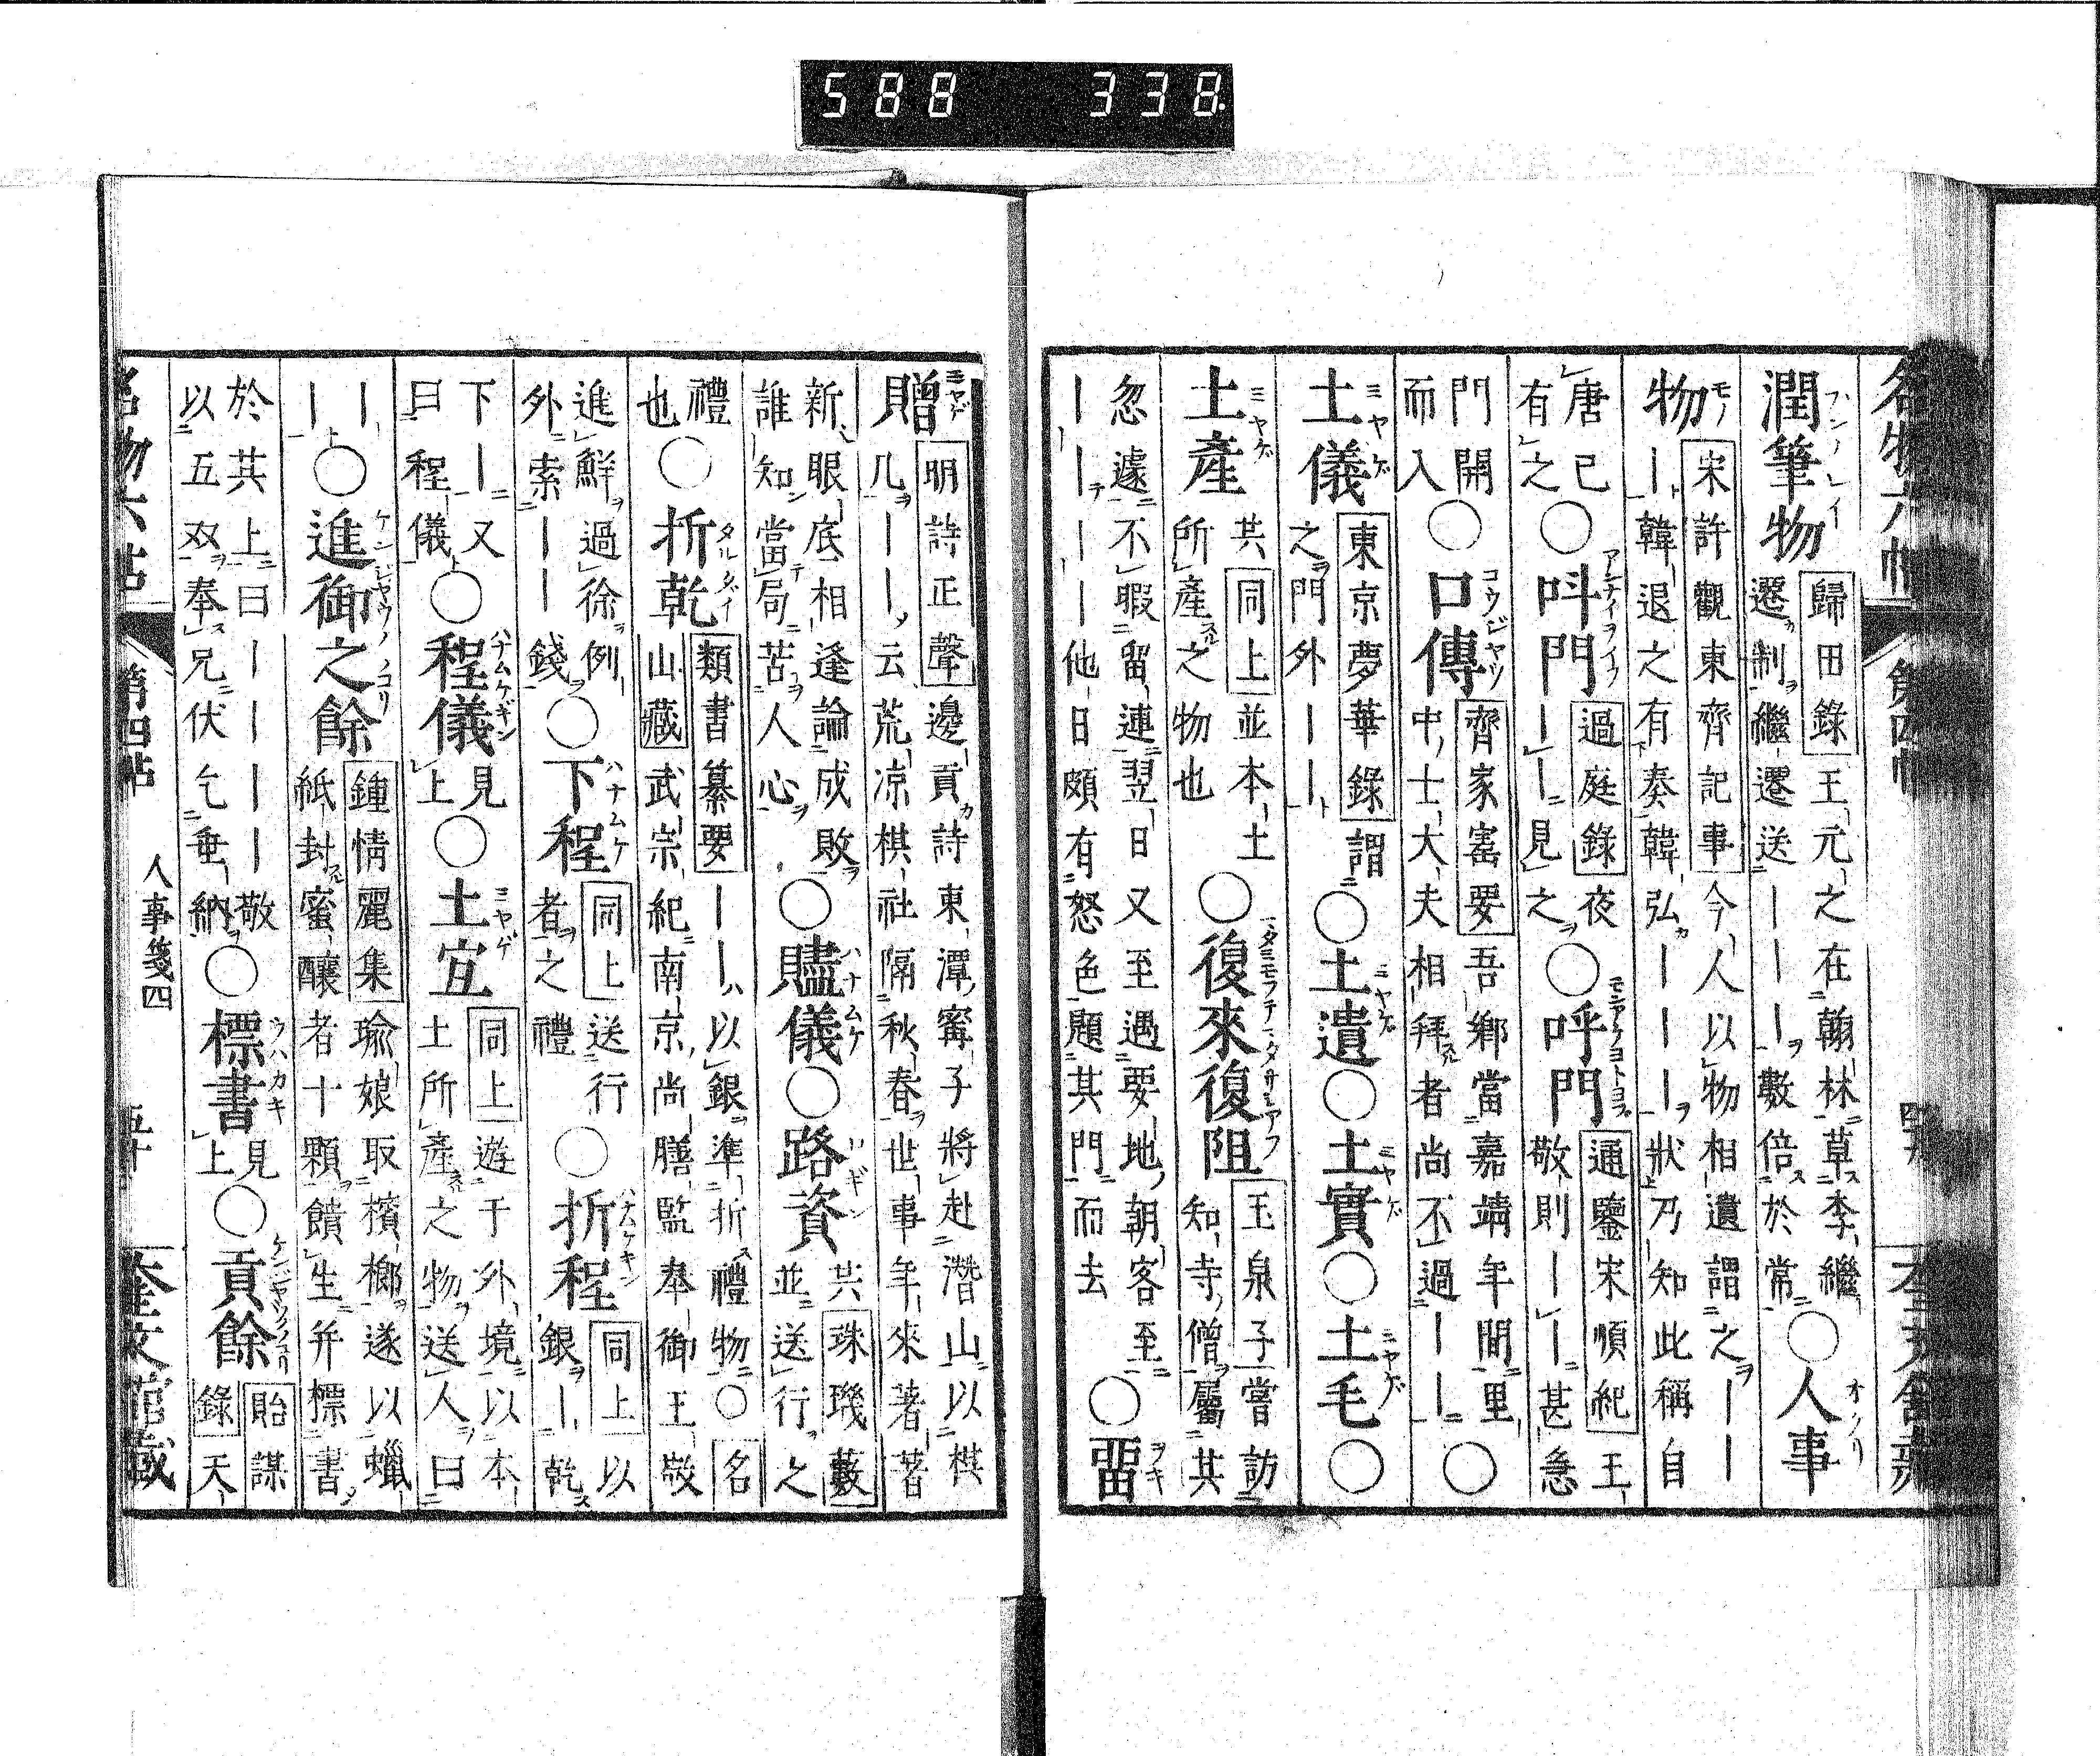 名物六帖 第四帖
潤筆物 歸田錄 王元之在翰林草李繼遷制繼遷送||||數倍於常 ○人事
物 宋許觀東齊記事 今人以物相遺謂之|||韓退之有奏韓弘||||狀乃知此稱自
唐已有之 ○呌門 過庭錄 夜||見之 ○呼門 通鑒宋順紀 王敬則||甚急
門開而入 ○口傳 齊家寳要 吾鄉當嘉靖年間里中士大夫相拜者尚不過|| ○
土儀 東京夢華錄 謂之門外|| ○土遺○土實○土毛○
土產 共同上並本土所產之物也 ○復來復阻 玉泉子 嘗訪知寺僧屬其
忽遽不暇留連翌日又至遇要地朝客至||||他日頗有怒色題其門而去 ○畱
贈 明許正聲 邊貢詩東潭寗子將赴潛山以棋几||云荒凉棋社隔秋春世事年來著著
新眼底相逢論成敗誰知當局苦人心 ○贐儀○路資 共珠璣藪並送行之
禮也 ○折乾 類書纂要 ||以銀準折禮物○名山藏武宗紀南京尚膳監奉御王敬
進鮮過徐例外索||錢 ○下程 同上 送行者之禮 ○折程 同上 以銀|乾
下|又曰程儀 ○程儀 見上 ○土宜 同上 遊于外境以本土所產之物送人曰
||| ○進御之餘 鍾情麗集 瑜娘取檳榔遂以蠟紙封蜜釀者十顆饋生并標書
於其上曰||||敬以五双奉兄伏乞垂納 ○標書 見上 ○貢餘 貽謀錄 天
名物六帖 第四帖 人事箋四 五十 奎文館藏
588 338